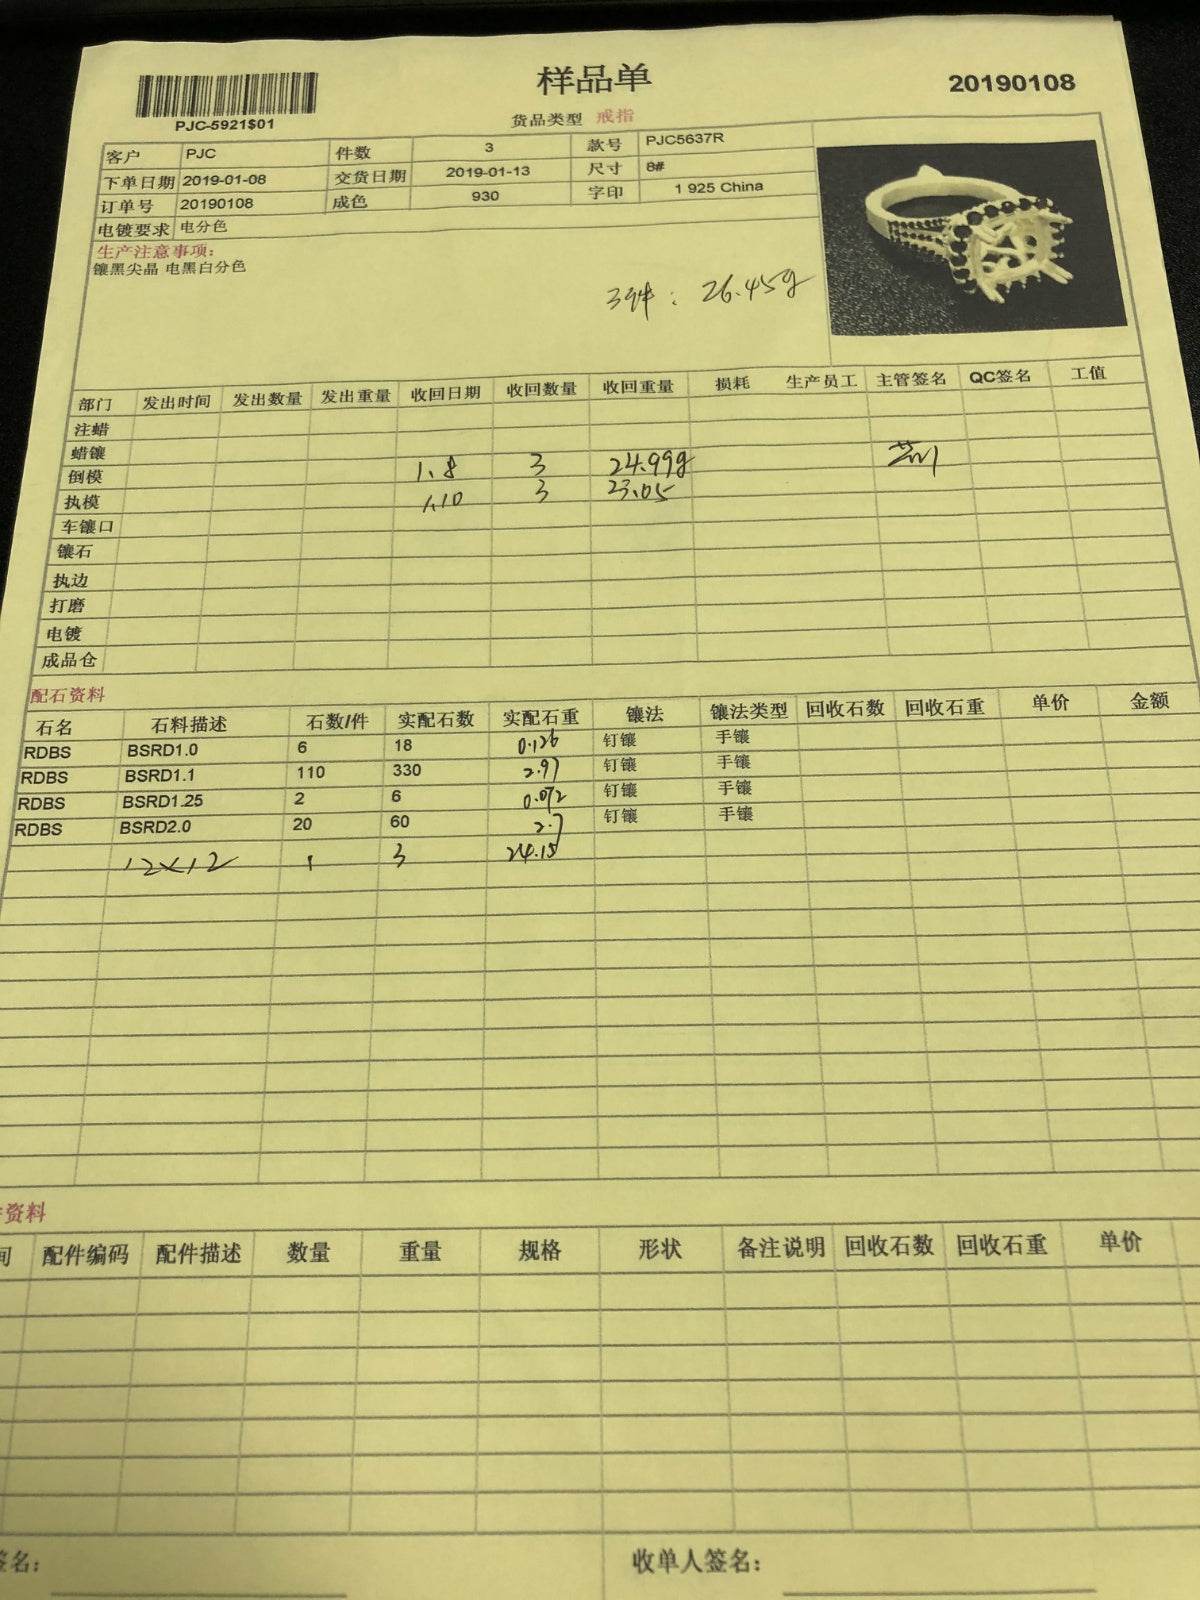 样品单
20190108
PJC-5921$01
货品类型 戒指
客户 PJC 件数 3 款号 PJC5637R
下单日期 2019-01-08 交货日期 2019-01-13 尺寸 8#
订单号 20190108 成色 930 字印 1 925 China
电镀要求 电分色
生产注意事项:
镶黑尖晶 电黑白分色
3件: 26.45g
部门 发出时间 发出数量 发出重量 收回日期 收回数量 收回重量 损耗 生产员工 主管签名 QC签名 工值
注蜡
蜡镶
倒模 1.8 3 24.99g
执模 1.10 3 23.05
车镶口
镶石
执边
打磨
电镀
成品仓
配石资料
石名 石料描述 石数/件 实配石数 实配石重 镶法 镶法类型 回收石数 回收石重 单价 金额
RDBS BSRD1.0 6 18 0.126 钉镶 手镶
RDBS BSRD1.1 110 330 2.97 钉镶 手镶
RDBS BSRD1.25 2 6 0.072 钉镶 手镶
RDBS BSRD2.0 20 60 2.7 钉镶 手镶
12×12 1 3 24.15
资料
间 配件编码 配件描述 数量 重量 规格 形状 备注说明 回收石数 回收石重 单价
签名: 收单人签名: